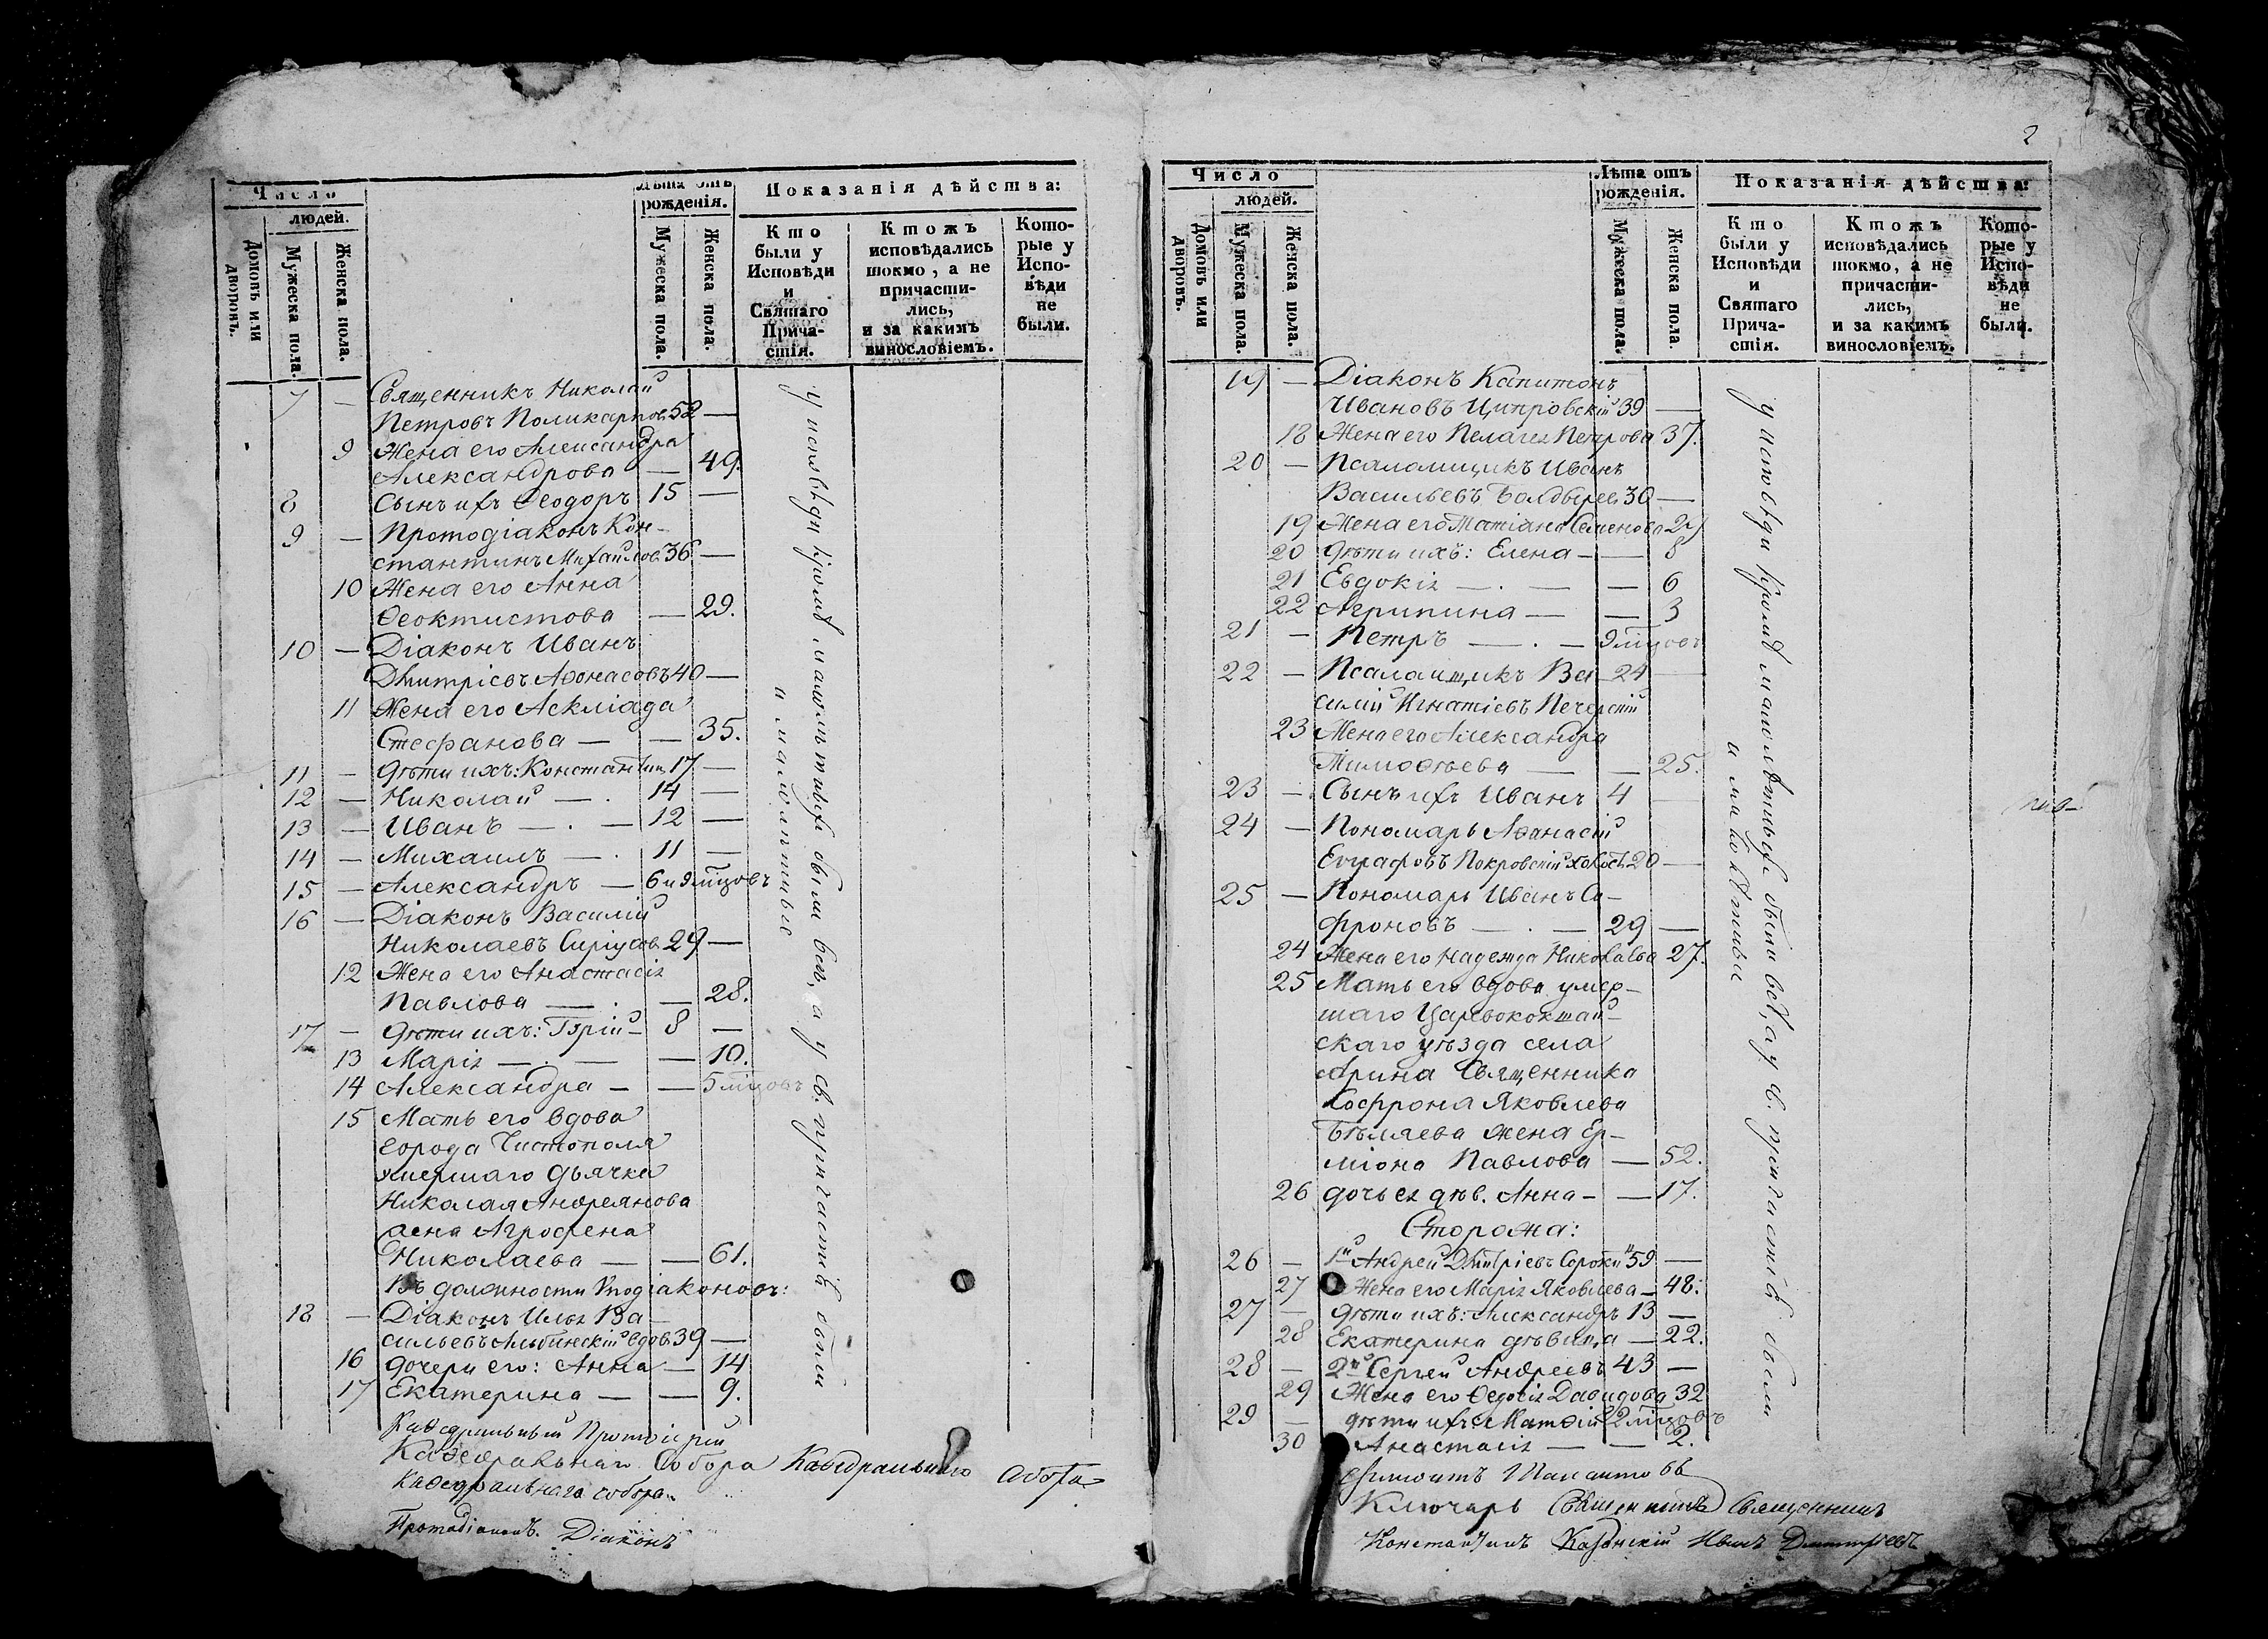 Число
людей.
Домовъ или дворовъ.
Мужеска пола.
Женска пола.
Лѣта отъ рожденія.
Мужеска пола.
Женска пола.
Показанія дѣйства:
Кто были у Исповѣди и Святаго Прича-стія.
Ктожъ исповѣдались токмо, а не причасти-лись, и за какимъ винословіемъ.
Кото-рые у Испо-вѣди не были.
7 — Священникъ Николай
Петровъ Поликарпов. 52 —
9 Жена его Александра
Александрова — 49.
8 Сынъ ихъ Ѳеодоръ 15 —
9 — Протодіаконъ Кон-
стантинъ Михайлов. 36 —
10 Жена его Анна
Ѳеоктистова — 29.
10 — Діаконъ Иванъ
Дмитріевъ Аѳонасовъ 40 —
11 Жена его Аскліада
Стефанова — — 35.
11 — дѣти ихъ: Константин 17 —
12 — Николай — . 14 —
13 — Иванъ — . — 12 —
14 — Михаилъ — . 11 —
15 — Александръ — 6 и 9 мѣцовъ
16 — Діаконъ Василій
Николаевъ 29 —
12 Жена его Анастасія
Павлова — . — 28.
17 — дѣти ихъ: Гурій — 8 —
13 Марія — . — — 10.
14 Александра — — 5 мѣцовъ
15 Мать его вдова
города Чистополя
умершаго дьячка
Николая Андреянова
жена Агрофена
Николаева — — 61.
Въ должности Уподіаконовъ:
18 — Діаконъ Илья Ва-
сильевъ вдов. 39 —
16 дочери его: Анна — 14
17 Екатерина — — 9.
у исповѣди кромѣ малолѣтныхъ были всѣ, а у св. причастія были
и малолѣтные
Каѳедральный Протоіерей
Каѳедральнаго Собора Каѳедральнаго Собора
Каѳедральнаго собора
Протодіаконъ. Діаконъ
2
Число
людей.
Домовъ или дворовъ.
Мужеска пола.
Женска пола.
Лѣта отъ рожденія.
Мужеска пола.
Женска пола.
Показанія дѣйства:
Кто были у Исповѣди и Святаго Прича-стія.
Ктожъ исповѣдались токмо, а не причасти-лись, и за какимъ винословіемъ.
Кото-рые у Испо-вѣди не были.
19 — Діаконъ Капитонъ
Ивановъ Ципровскій 39 —
18 Жена его Пелагея Петрова 37.
20 — Псаломщикъ Иванъ
Васильевъ Болдырев 30 —
19 Жена его Татіана Семенова 29
20 дѣти ихъ: Елена — — 8
21 Евдокія — . — — 6
22 Агрипина — — 3
21 — Петръ — . — 9 мѣцовъ
22 — Псаломщикъ Ва- 24 —
силій Игнатіевъ Печерскій
23 Жена его Александра
Тимоѳѣева — — 25.
23 — Сынъ ихъ Иванъ 4 —
24 — Пономарь Аѳанасій
Евграфовъ Покровскій холост. 20 —
25 — Пономарь Иванъ Со-
фроновъ — . — 29 —
24 Жена его Надежда Николаева 27.
25 Мать его вдова умер-
шаго Царевококшай-
скаго уѣзда села
Арина Священника
Софрона Яковлева
Бѣляева жена Ер-
міона Павлова — 52.
26 дочь ея дѣв. Анна — — 17.
Сторожа:
26 — 1й Андрей Дмитріевъ Сорокин 59 —
27 Жена его Марія Яковлева — 48.
27 — дѣти ихъ: Александръ 13 —
28 Екатерина дѣвица — 22.
28 — 2й Сергей Андреевъ 43 —
29 Жена его Ѳедосія Давидова 32
29 — дѣти ихъ: Матѳій 2 мѣцовъ
30 Анастасія — — 2.
у исповѣди кромѣ малолѣтныхъ были всѣ, а у св. причастія были
и малолѣтные
Ключарь Священникъ Священникъ
Константинъ Казанскій Иванъ Дмитріевъ